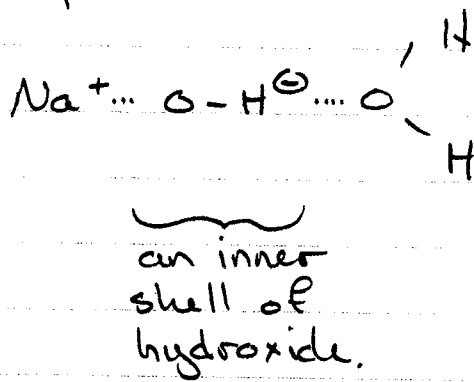 H
Na⁺ ... O - H⊖ .... O
H
an inner
shell of
hydroxide.